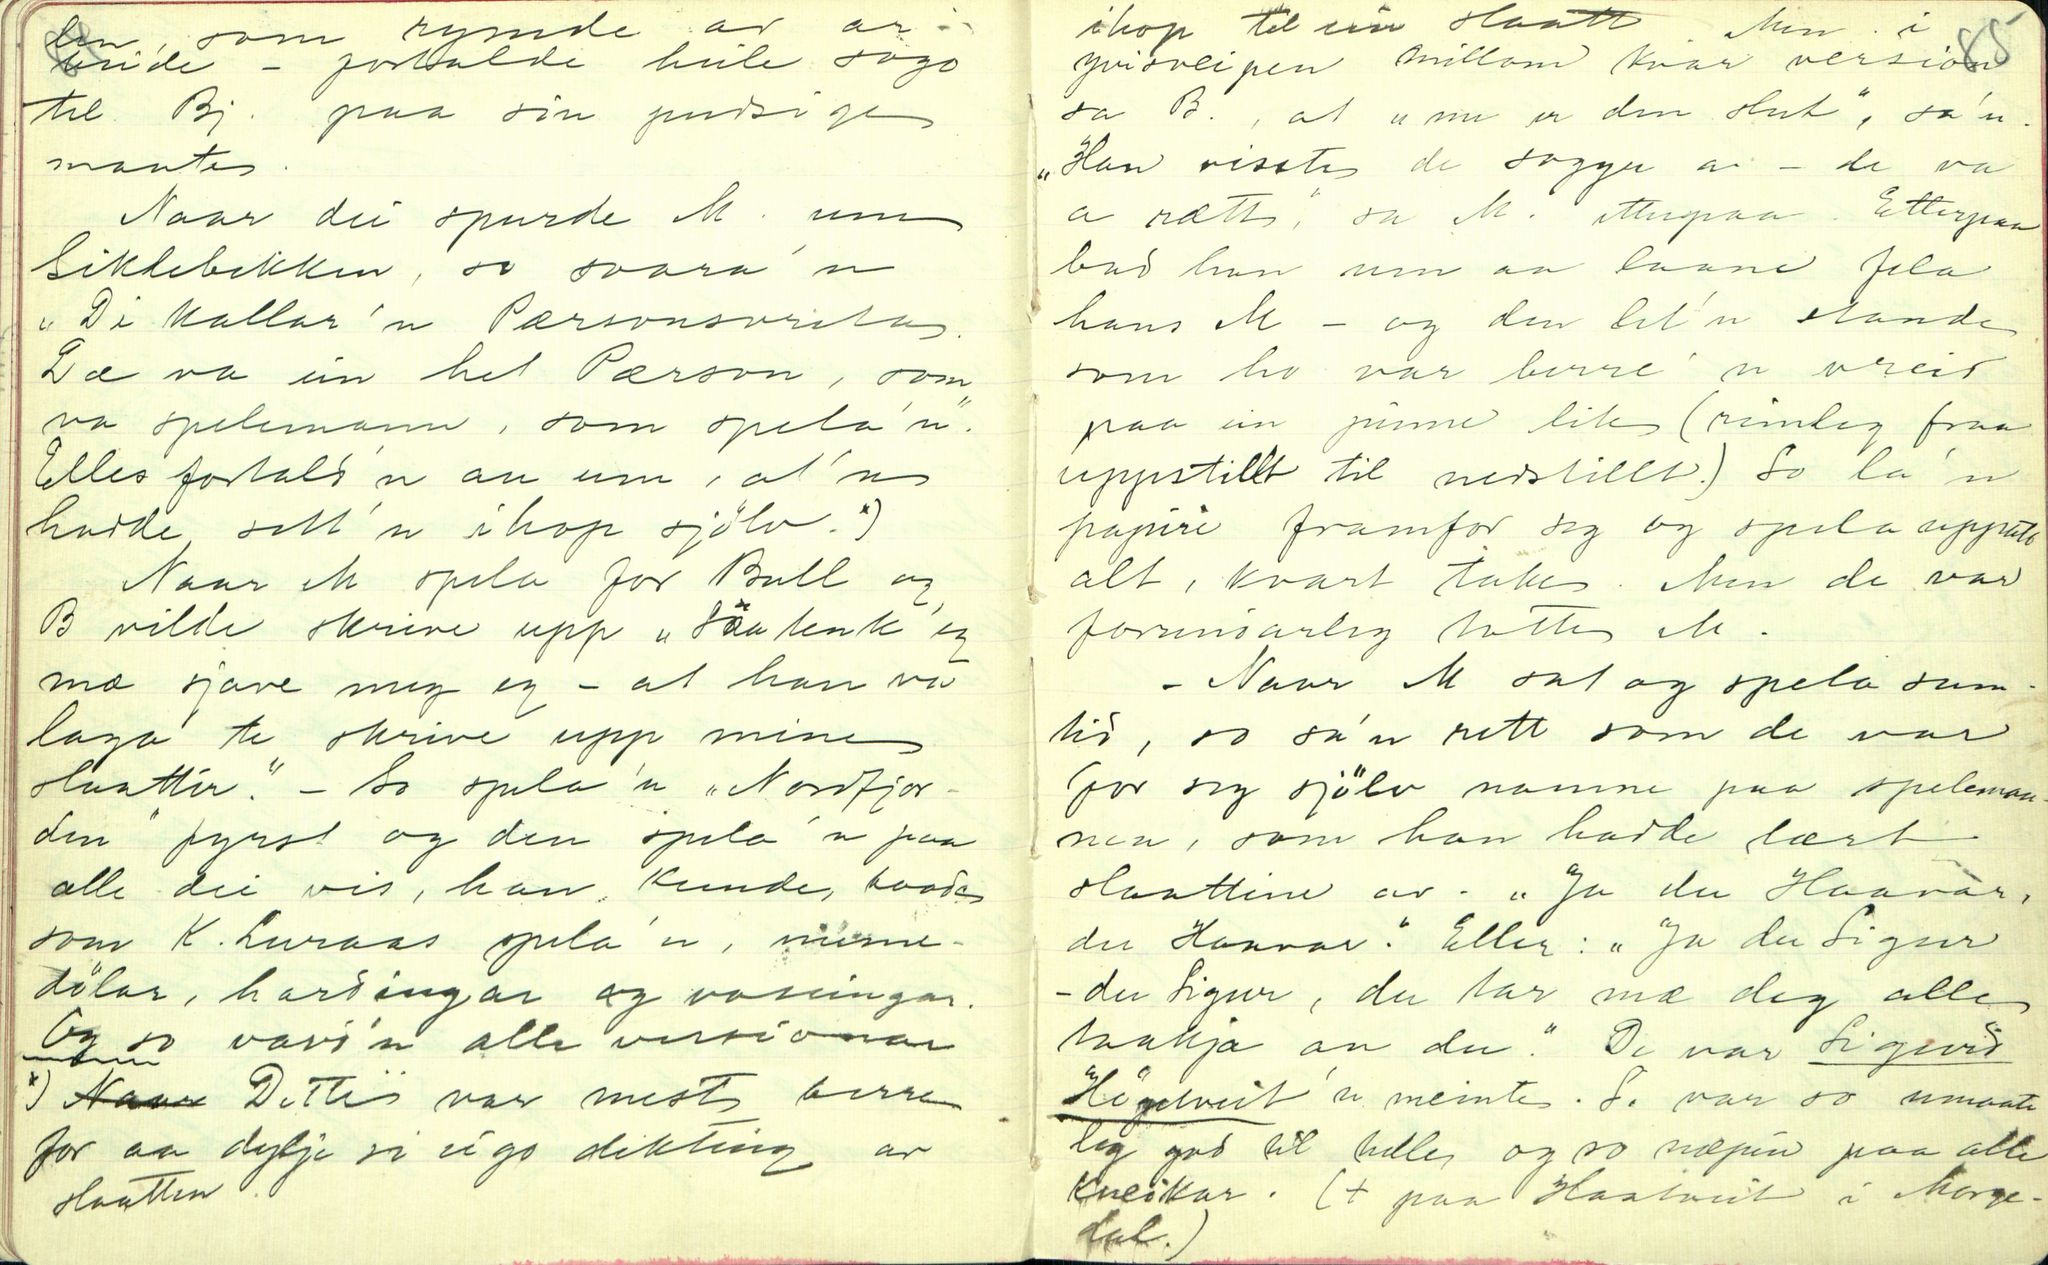 len, som rymde av ar-
beide – fortalde heile sogo
til Bj. paa sin pudsige
maate.
Naar dei spurde M. um
Siklebekken, so svara'n
„Di kallar'n Pærsonsvreta.
Dæ va ein het Pærson, som
va spelemann, som spela'n".
Elles fortald'n au um, at'n
hadde sett'n ihop sjölv.*)
Naar M spela for Bull og
B vilde skrive upp „Saa tenk eg
mæ sjave meg eg – at han va
laga te skrive upp mine
slaattir." – So spela'n „Nordfjor-
den" fyrst og den spela'n paa
alle dei vis, han kunde, baade
som K. Luraas spela'n, numme-
dölar, hardingar og vossingar.
Og so vavd'n alle versionar
*) Naar Dette var mest berre
for aa dylje si eigo dikting av
slaatten.
85
ihop til ein slaatt. Men i
yvisveipen millom kvar version
sa B., at „nu er den slut", sa'n.
„Han visste de sogga a – de va
a rætt", sa M. etterpaa. Etterpaa
bad han um aa laane fela
hans M – og den let'n stande
som ho var berre'n vreid
paa ein pinne lite (rimleg fraa
uppstillt til nedstillt.) So la'n
papiri framfor seg og spela uppatt
alt, kvart tak. Men de var
forundarleg totte M.
– Naar M sat og spela sum-
tid, so sa'n rett som de var
for seg sjölv namne paa speleman-
nen, som han hadde lært
slaattine av. „Ja du Haavar,
du Haavar." Eller: „Ja du Sigur
– du Sigur, du tar mæ deg alle
taakja an du." De var Sigurd
Högetveit'n meinte. S. var so umaate
leg god til telle og so næpin paa alle
kneikar. (+ paa Haatveit i Morge-
dal.)